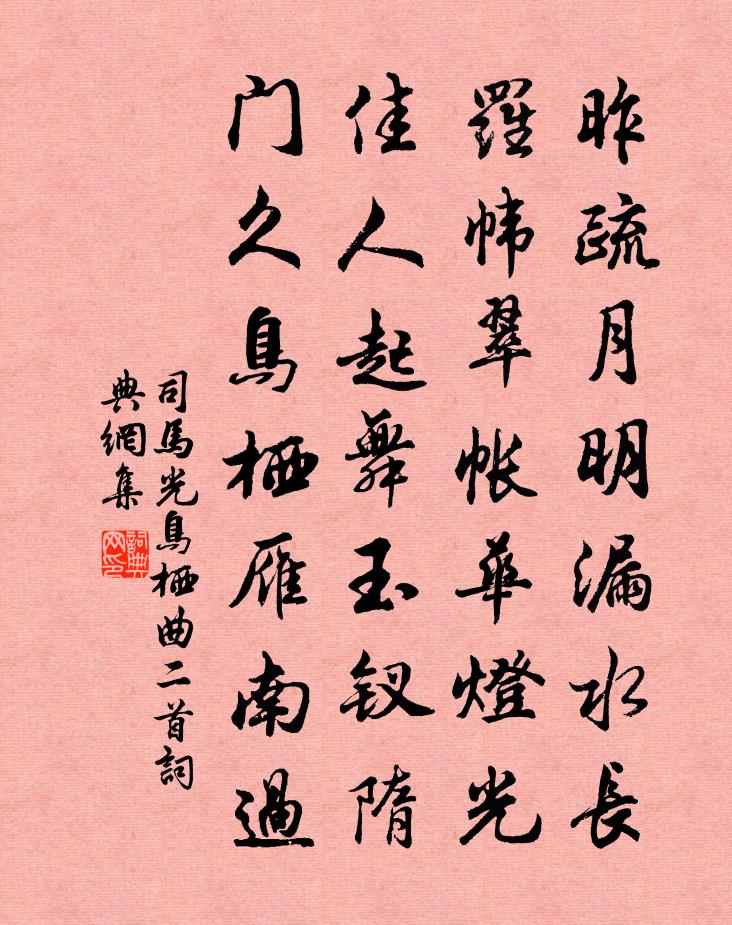 昨疏月明漏水長
羅幃翠帳華燈光
佳人起舞玉釵隋
门久烏栖雁南過
司馬光烏栖曲二首詞
典網集
詞典网印